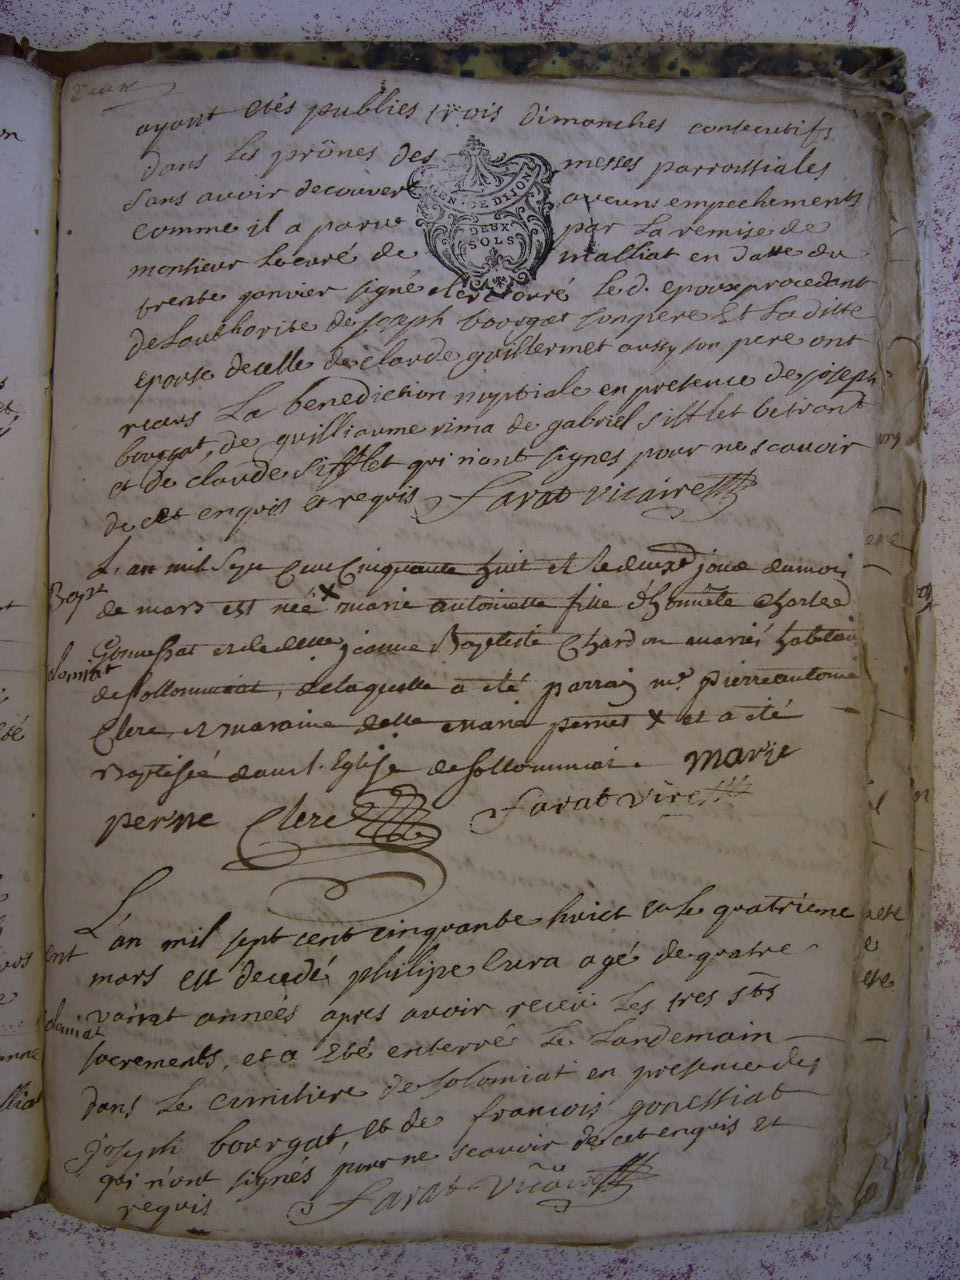 deux
ayant etés publies trois dimanches consecutifs
dans les prônes des messes parroissiales
sans avoir decouvert aucuns empechements
comme il a parue par la remise de
monsieur le curé de malliat en datte du
GEN. DE DIJON
DEUX
SOLS
trente janvier signé clerc curé le d. epoux procedant
de lauthorite de joseph bourgat son pere et la ditte
epouse de celle de claude guillermet aussy son pere ont
recus la benediction nuptiale en presence de joseph
bourgat, de guilliaume rima de gabriel sifflet betrant
et de claude sifflet qui n'ont signes pour ne scavoir
de cet enquis et requis farat vicaire
L'an mil sept cent cinquante huit et le deuxe jour du moi
Bapt
de mars est néé x marie antoinette fille d'honnête Charle
Gonessiat et de delle jeanne Baptiste Chardon mariés habitan
solomiat
de sollommiat, de laquelle a été parrain mr. pierre antoine
Clerc, et maraine delle marie pernet x et a été
Baptisée dans l'Eglise de sollommiat. marie
perne Clerc farat vire
L'an mil sept cent cinquante huict et le quatrieme
ent
mars est decedé philipe Cura agé de quatre
vaint années apres avoir receu les tres sts
solomiat
sacrements, et a eté enterré le landemain
dans le cimitiere de solomiat en presence de
joseph bourgat, et de francois gonessiat
qui n'ont signés pour ne scavoir de cet enquis et
requis farat vicaire